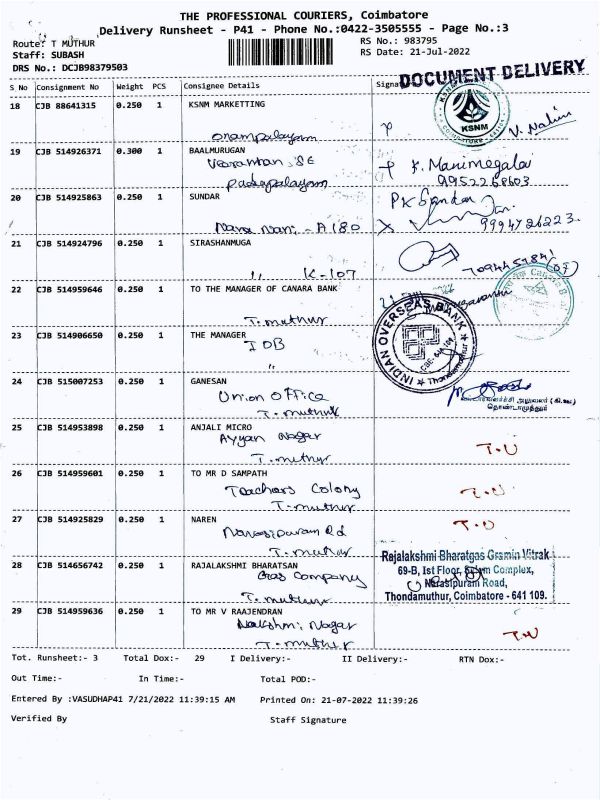 THE PROFESSIONAL COURIERS, Coimbatore
Delivery Runsheet - P41 - Phone No.:0422-3505555 - Page No.:3
Route: T MUTHUR
Staff: SUBASH
DRS No.: DCJB98379503
RS No.: 983795
RS Date: 21-Jul-2022
DOCUMENT DELIVERY
S_No Consignment No Weight PCS Consignee Details Signat
18 CJB 88641315 0.250 1 KSNM MARKETTING
KSNM
V. Nalini
19 CJB 514926371 0.300 1 BAALMURUGAN
K. Manimegalai
9952268603
20 CJB 514925863 0.250 1 SUNDAR
9994726223
21 CJB 514924796 0.250 1 SIRASHANMUGA
" K-107
22 CJB 514959646 0.250 1 TO THE MANAGER OF CANARA BANK
T. muthur
23 CJB 514906650 0.250 1 THE MANAGER
IOB
"
INDIAN OVERSEAS BANK
Thondamuthur
24 CJB 515007253 0.250 1 GANESAN
Union office
T. muthur
தொண்டாமுத்தூர்
25 CJB 514953898 0.250 1 ANJALI MICRO
Ayyan Nagar
T. muthur
26 CJB 514959601 0.250 1 TO MR D SAMPATH
Teachers Colony
T. muthur
27 CJB 514925829 0.250 1 NAREN
Narasipuram Rd
T. muthur
28 CJB 514656742 0.250 1 RAJALAKSHMI BHARATSAN
Gas Company
T. muthur
Rajalakshmi Bharatgas Gramin Vitrak
69-B, Ist Floor, Selam Complex,
Narasipuram Road,
Thondamuthur, Coimbatore - 641 109.
29 CJB 514959636 0.250 1 TO MR V RAAJENDRAN
Nagar
T. muthur
Tot. Runsheet:- 3 Total Dox:- 29 I Delivery:- II Delivery:- RTN Dox:-
Out Time:- In Time:- Total POD:-
Entered By :VASUDHAP41 7/21/2022 11:39:15 AM Printed On: 21-07-2022 11:39:26
Verified By Staff Signature